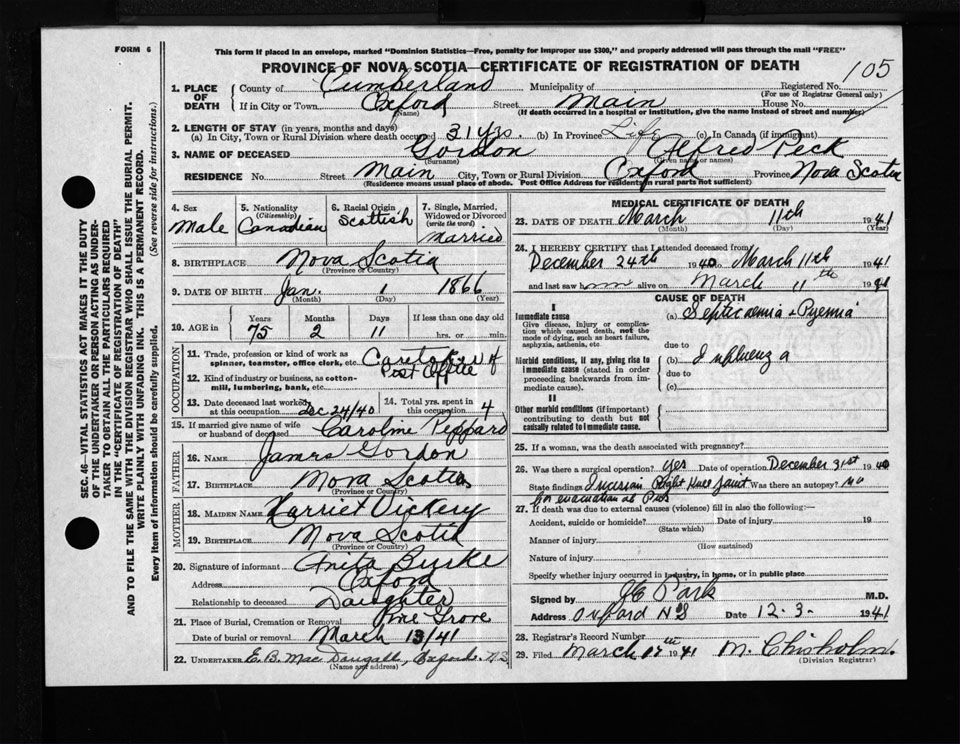 FORM 6
This form if placed in an envelope, marked "Dominion Statistics—Free, penalty for improper use $300," and properly addressed will pass through the mail "FREE"
PROVINCE OF NOVA SCOTIA—CERTIFICATE OF REGISTRATION OF DEATH
105
SEC. 46—VITAL STATISTICS ACT MAKES IT THE DUTY
OF THE UNDERTAKER OR PERSON ACTING AS UNDER-
TAKER TO OBTAIN ALL THE PARTICULARS REQUIRED
IN THE "CERTIFICATE OF REGISTRATION OF DEATH"
AND TO FILE THE SAME WITH THE DIVISION REGISTRAR WHO SHALL ISSUE THE BURIAL PERMIT.
WRITE PLAINLY WITH UNFADING INK. THIS IS A PERMANENT RECORD.
Every item of information should be carefully supplied. (See reverse side for instructions.)
1. PLACE OF DEATH
County of Cumberland Municipality of Registered No.
(For use of Registrar General only)
If in City or Town Oxford Street Main House No.
(Name) (If death occurred in a hospital or institution, give the name instead of street and number)
2. LENGTH OF STAY (in years, months and days)
(a) In City, Town or Rural Division where death occured 31 yrs. (b) In Province Life (c) In Canada (if immigrant)
3. NAME OF DECEASED Gordon Alfred Peck
(Surname) (Given name or names)
RESIDENCE No. Street Main City, Town or Rural Division Oxford Province Nova Scotia
(Residence means usual place of abode. Post Office Address for residents in rural parts not sufficient)
4. Sex Male
5. Nationality (Citizenship) Canadian
6. Racial Origin Scottish
7. Single, Married, Widowed or Divorced (write the word) Married
8. BIRTHPLACE Nova Scotia
(Province or Country)
9. DATE OF BIRTH Jan. 1 1866
(Month) (Day) (Year)
10. AGE in Years Months Days If less than one day old
75 2 11 hrs. or min.
OCCUPATION
11. Trade, profession or kind of work as spinner, teamster, office clerk, etc. Caretaker of
Post Office
12. Kind of industry or business, as cotton-mill, lumbering, bank, etc.
13. Date deceased last worked at this occupation Dec 24/40 14. Total yrs. spent in this occupation 4
15. If married give name of wife or husband of deceased Caroline Peppard
FATHER
16. Name James Gordon
17. Birthplace Nova Scotia
(Province or Country)
MOTHER
18. MAIDEN NAME Harriet Vickery
19. BIRTHPLACE Nova Scotia
(Province or Country)
20. Signature of informant Anita Burke
Address Oxford
Relationship to deceased Daughter
21. Place of Burial, Cremation or Removal Pine Grove
Date of burial or removal March 13/41
22. UNDERTAKER E. B. MacDougall, Oxford. N.S
(Name and address)
MEDICAL CERTIFICATE OF DEATH
23. DATE OF DEATH March 11th 1941
(Month) (Day) (Year)
24. I HEREBY CERTIFY that I attended deceased from
December 24th 1940 to March 11th 1941
and last saw him alive on March 11th 1941
CAUSE OF DEATH
I
Immediate cause
Give disease, injury or complication which caused death, not the mode of dying, such as heart failure, asphyxia, asthenia, etc.
(a) Septicaemia + Pyemia
due to
Morbid conditions, if any, giving rise to immediate cause (stated in order proceeding backwards from immediate cause).
(b) Influenza
due to
(c)
II
Other morbid conditions (if important) contributing to death but not causally related to immediate cause.
25. If a woman, was the death associated with pregnancy?
26. Was there a surgical operation? Yes Date of operation December 31st 1940
State findings Incision Right Knee Joint Was there an autopsy? no
for evacuation of Pus
27. If death was due to external causes (violence) fill in also the following:—
Accident, suicide or homicide? Date of injury 19
(State which)
Manner of injury
(How sustained)
Nature of injury
Specify whether injury occurred in industry, in home, or in public place
Signed by Park M.D.
Address Oxford NS Date 12-3- 1941
28. Registrar's Record Number
29. Filed March th 1941 M. Chisholm.
(Division Registrar)